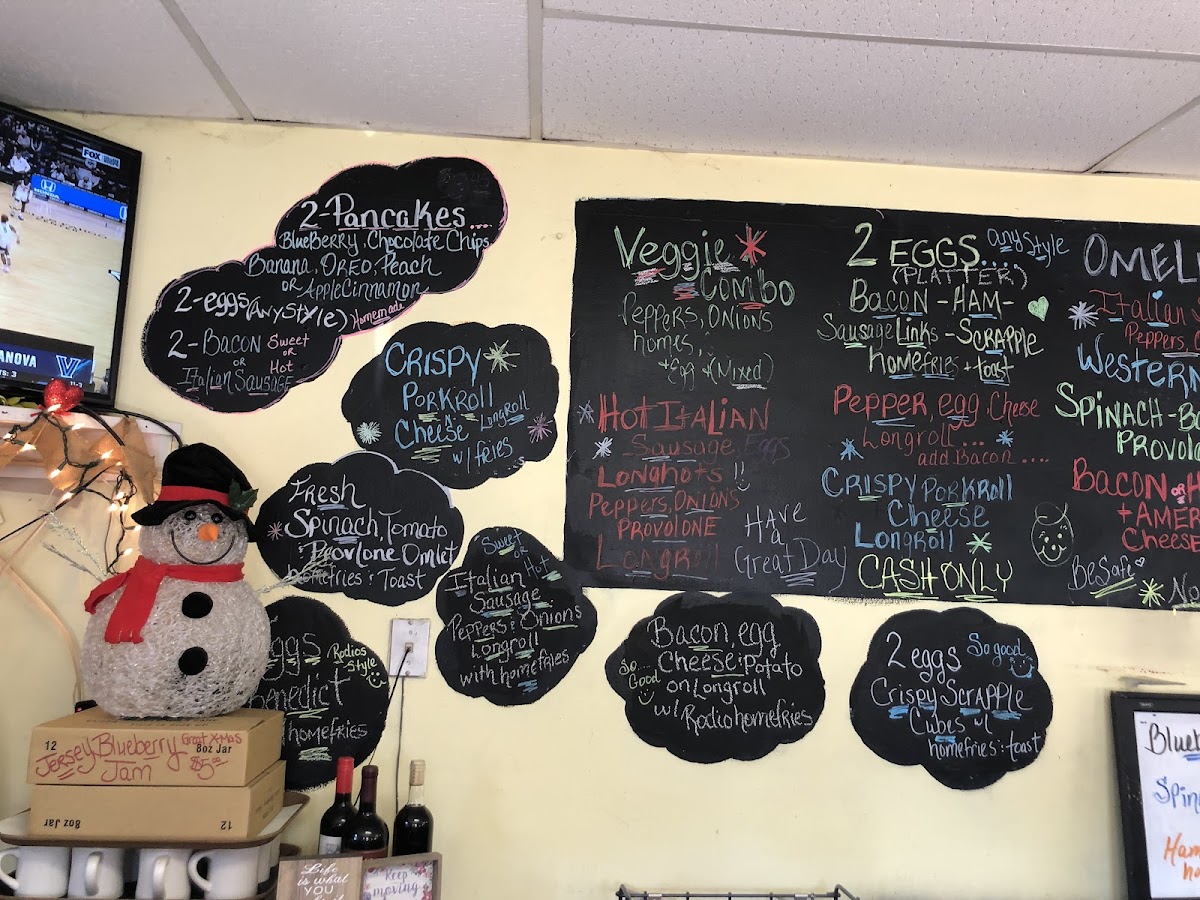 FOX
HONDA
ANOVA
2-Pancakes....
BlueBerry, Chocolate Chips
Banana, OREO, Peach
or Apple Cinnamon
2-eggs (AnyStyle) Homemade
2-Bacon Sweet
or or
Italian Sausage Hot
Crispy
PorkRoll
Cheese Longroll
w/ fries
Fresh
Spinach, Tomato
Povrlone Omlet
homefries : Toast
Eggs Rodios
Style
Benedict
homefries
Sweet
or
Italian Hot
Sausage
Peppers : Onions
Longroll
with homefries
Veggie
Combo
Peppers, Onions
homes,
+ Egg + (Mixed)
Hot Italian
Sausage, Eggs
Longhots !!
Peppers, Onions
Provolone
Longroll
Have
a
Great Day
2 EGGS.... anyStyle
(PLATTER)
Bacon - Ham -
Sausage Links - Scrapple
homefries + toast
Pepper, egg, Cheese
Longroll...
add Bacon....
Crispy Porkroll
Cheese
Longroll
CASH ONLY
OMEL
Italian
Peppers,
Western
Spinach - B
Provolo
Bacon or H
+ AMER
Cheese
BeSafe
Bacon, egg
Cheese : Potato
on Longroll
w/ Rodio homefries
So...
Good
2 eggs So good
Crispy Scrapple
Cubes w/
homefries : toast
Blueb
Spin
Ham
ho
12 8oz Jar
Jersey Blueberry Great X-Mas
Jam $5.00
8oz Jar 12
Life
is what
YOU
keep
moving